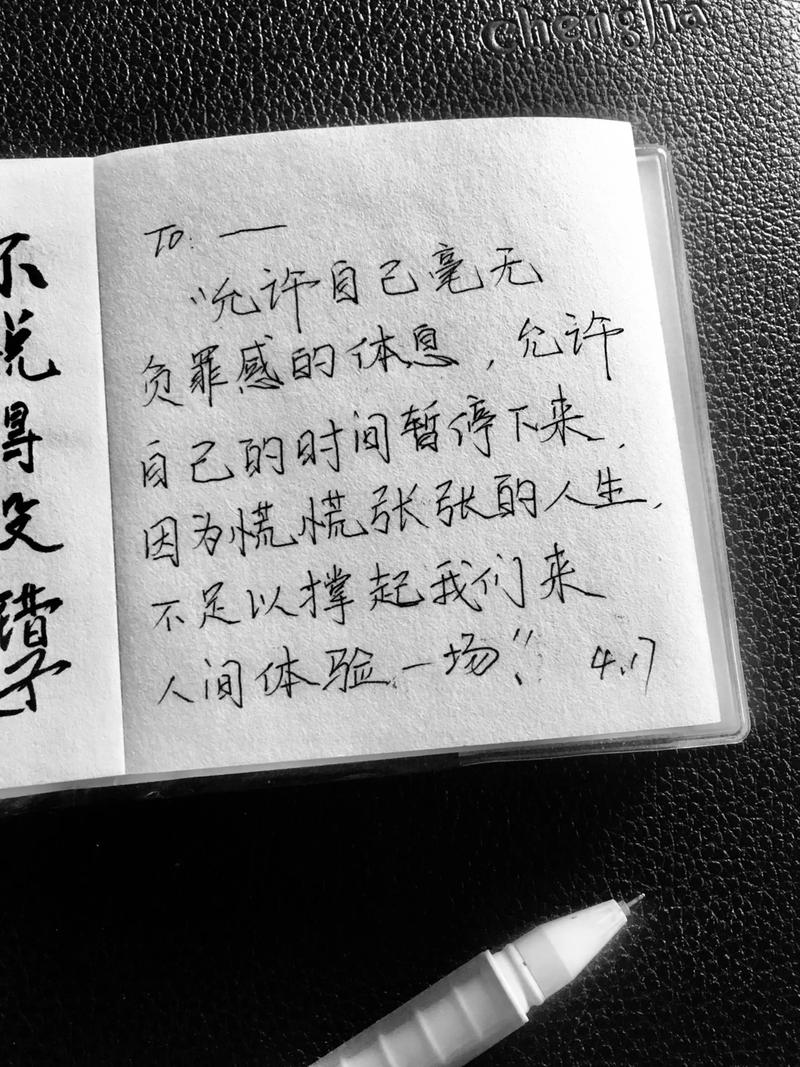 Chengjia
不
说
得
没
错
子
To: —
“允许自己毫无
负罪感的体息,允许
自己的时间暂停下来,
因为慌慌张张的人生,
不足以撑起我们来
人间体验一场”. 4.17